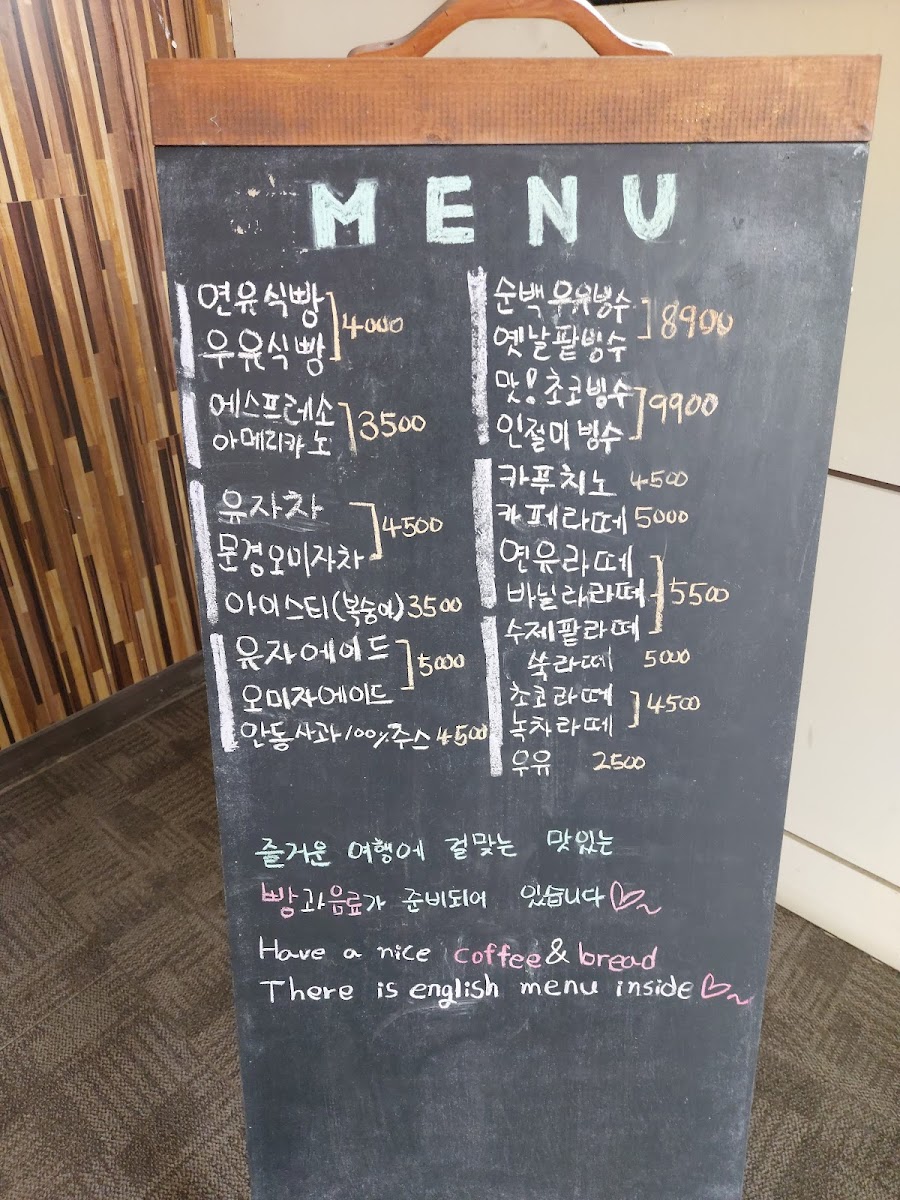 MENU
연유식빵
우유식빵
4000
에스프레소
아메리카노
3500
유자차
문경오미자차
4500
아이스티(복숭아) 3500
유자에이드
오미자에이드
5000
안동사과100%주스 4500
순백우유빙수
옛날팥빙수
8900
맛!초코빙수
인절미빙수
9900
카푸치노 4500
카페라떼 5000
연유라떼
바닐라라떼
수제팥라떼
5500
쑥라떼 5000
초코라떼
녹차라떼
4500
우유 2500
즐거운 여행에 걸맞는 맛있는
빵과음료가 준비되어 있습니다♡~
Have a nice coffee & bread
There is english menu inside♡~